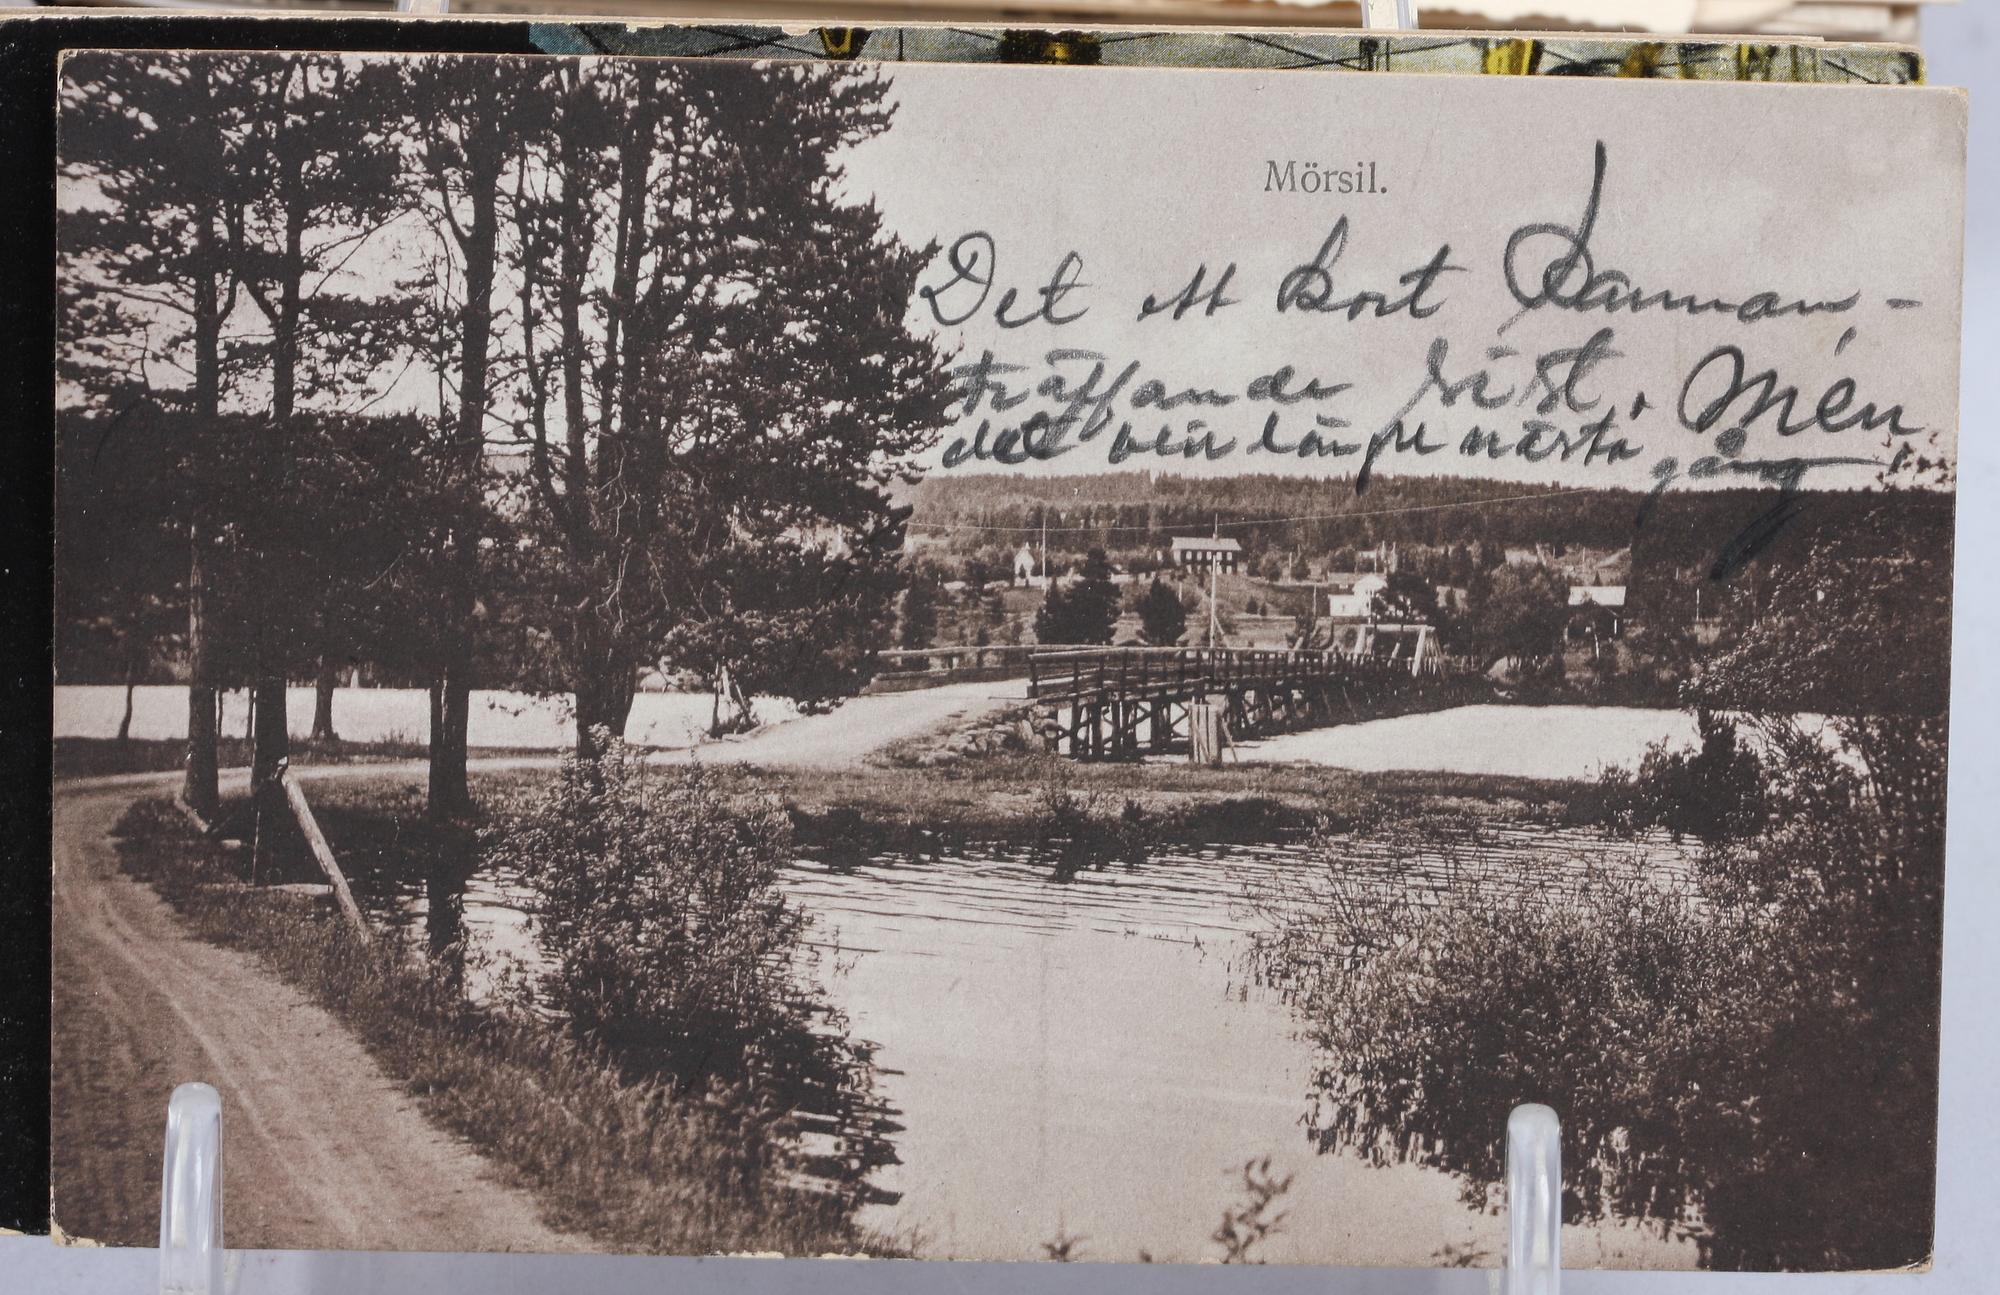 Mörsil.
Det ett kort Samman-
träffande sist. Men
det blir längre nästa gång.